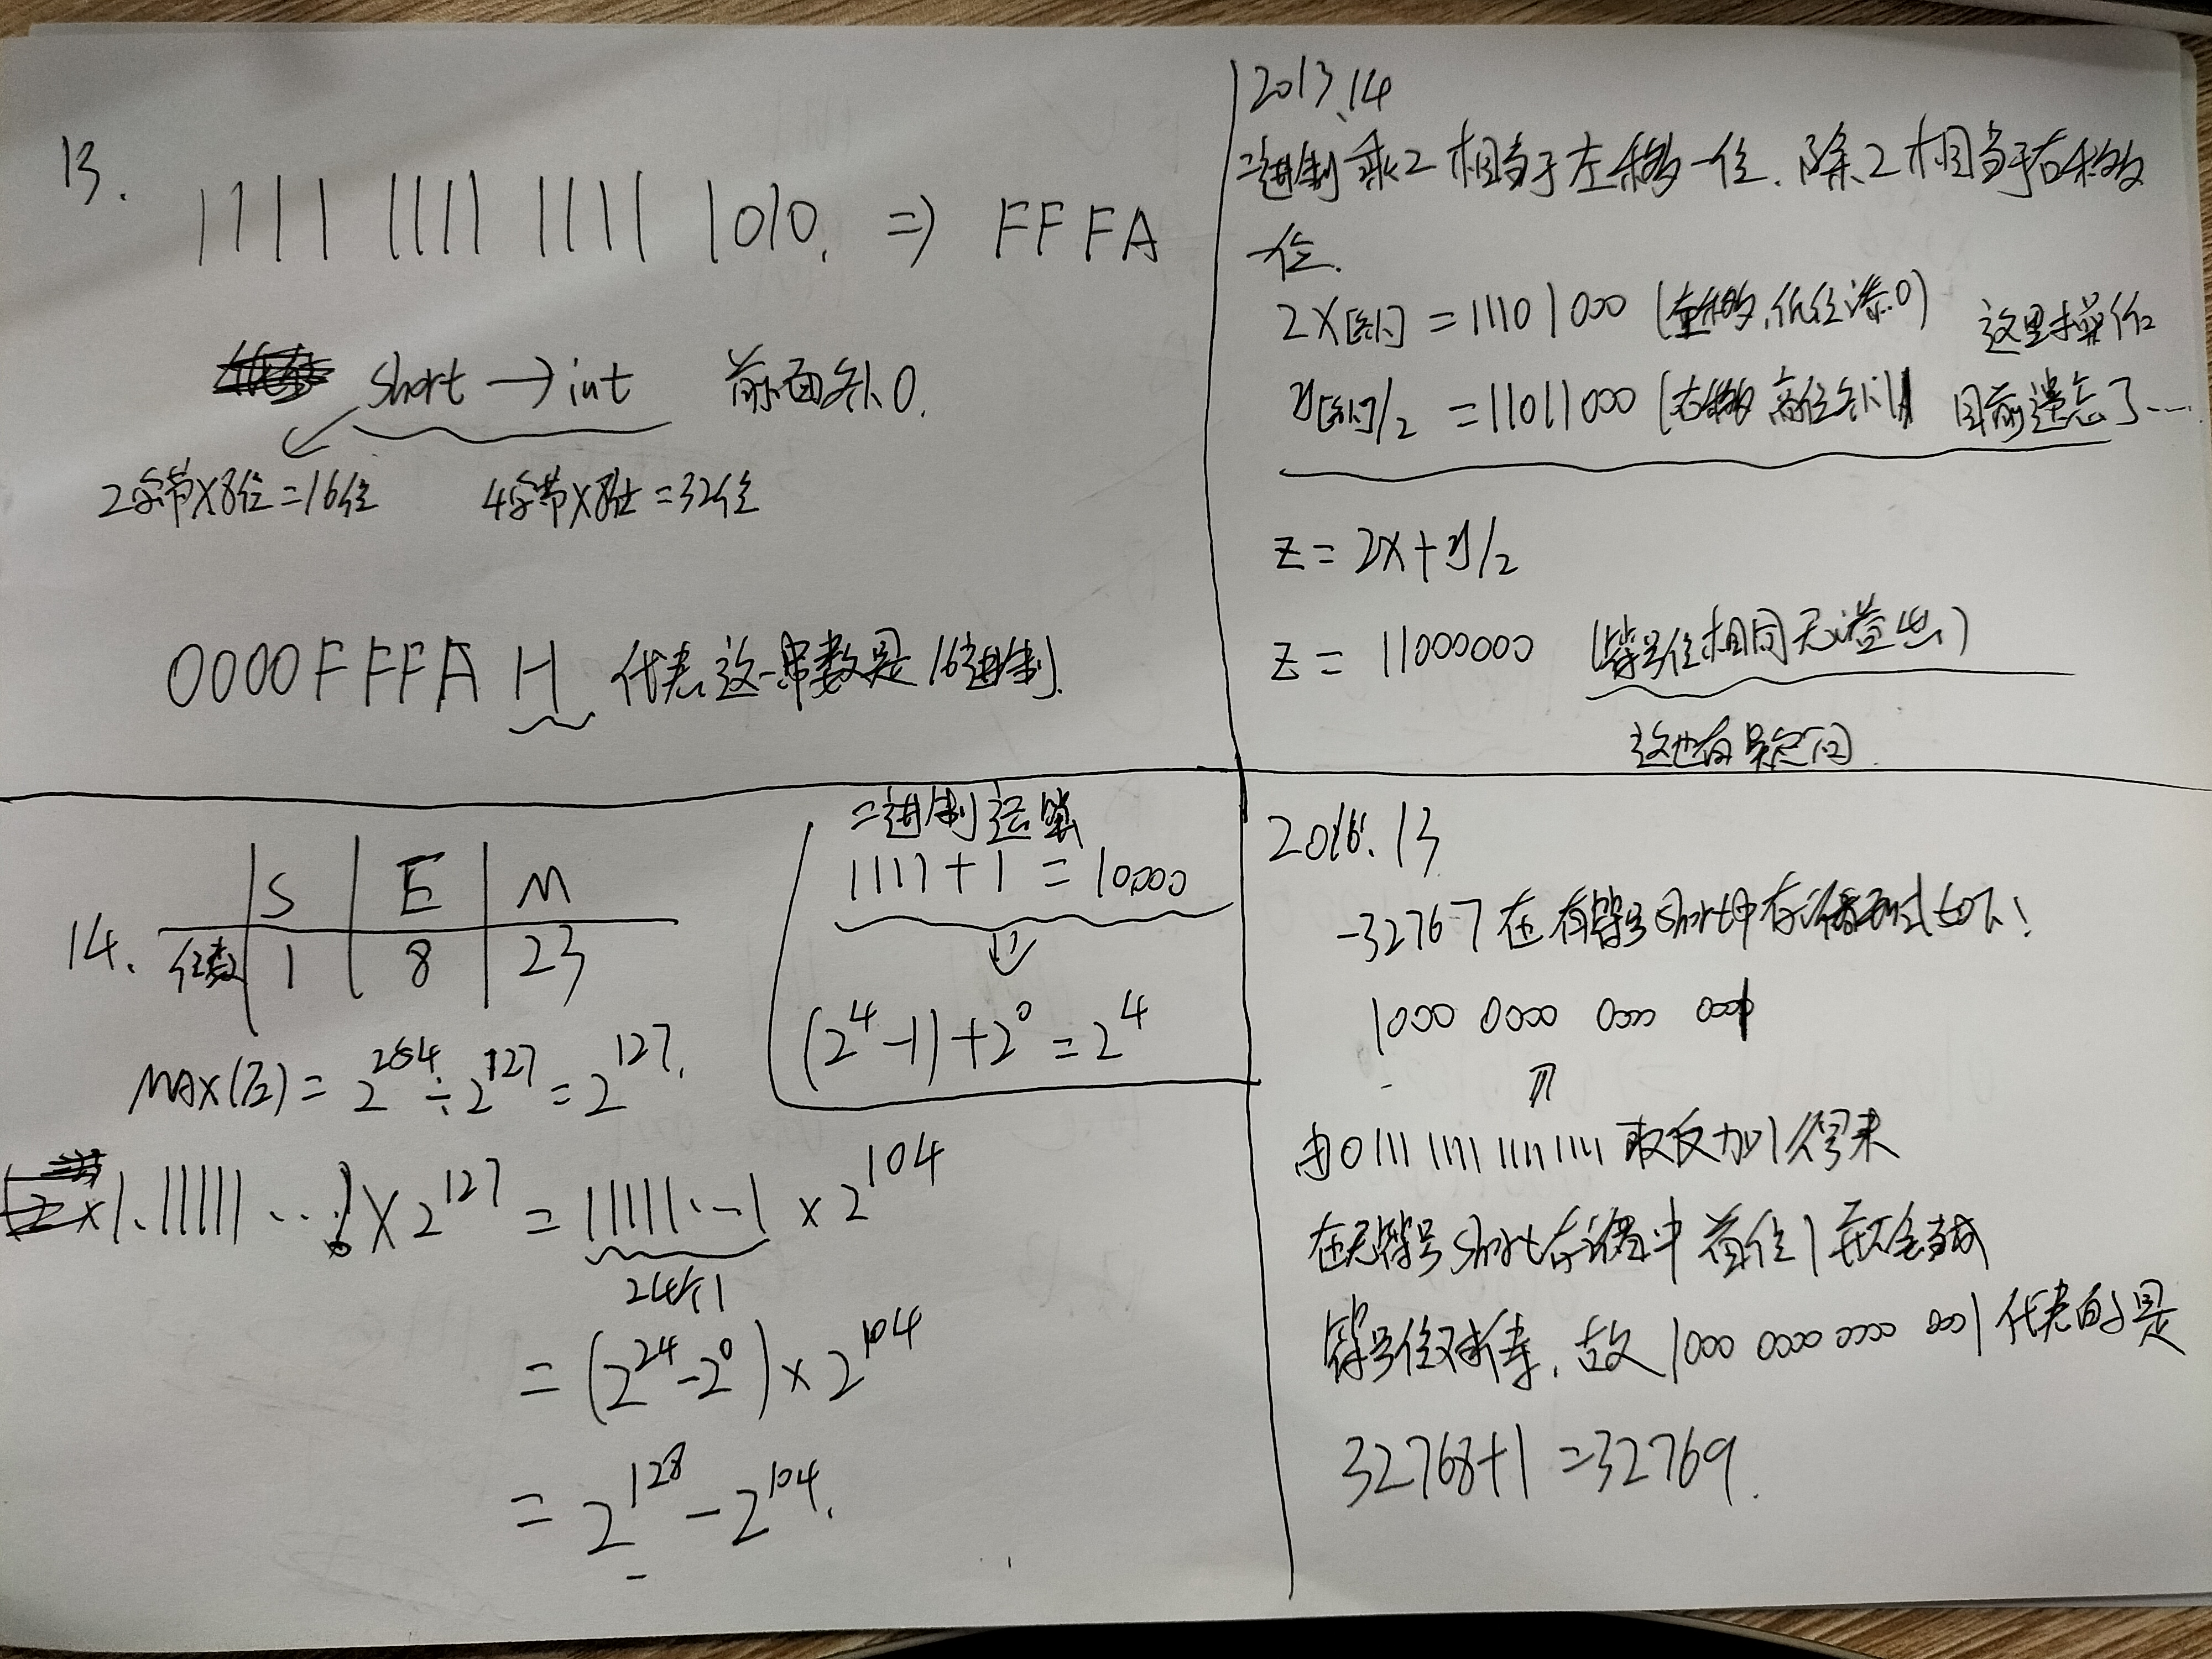 13.
1111 1111 1111 1010. => FFFA
short → int 前面补0.
2字节×8位=16位 4字节×8位=32位
0000FFFA H 代表这一串数是16进制.
2013.14
二进制乘2相当于左移一位.除2相当于右移
一位.
2X[补]=11101000 (左移,低位添0) 这里操作
y[补]/2 =11011000 (右移 高位补1) 目前遗忘了...
z=2X+y/2
z= 11000000 (符号位相同无溢出)
这也有疑问.
14.
S E M
位数 1 8 23
MAX(E)=2^254÷2^127=2^127.
1.11111...1×2^127=11111...1×2^104
24个1
=(2^24-2^0)×2^104
=2^128-2^104.
二进制运算
1111+1=10000
(2^4-1)+2^0=2^4
2016.13
-32767在有符号short中存储形式如下!
1000 0000 0000 0001
由0111 1111 1111 1111 取反加1得来
在无符号short存储中首位1并不会当成
符号位对待.故1000 0000 0000 0001代表的是
32768+1=32769.